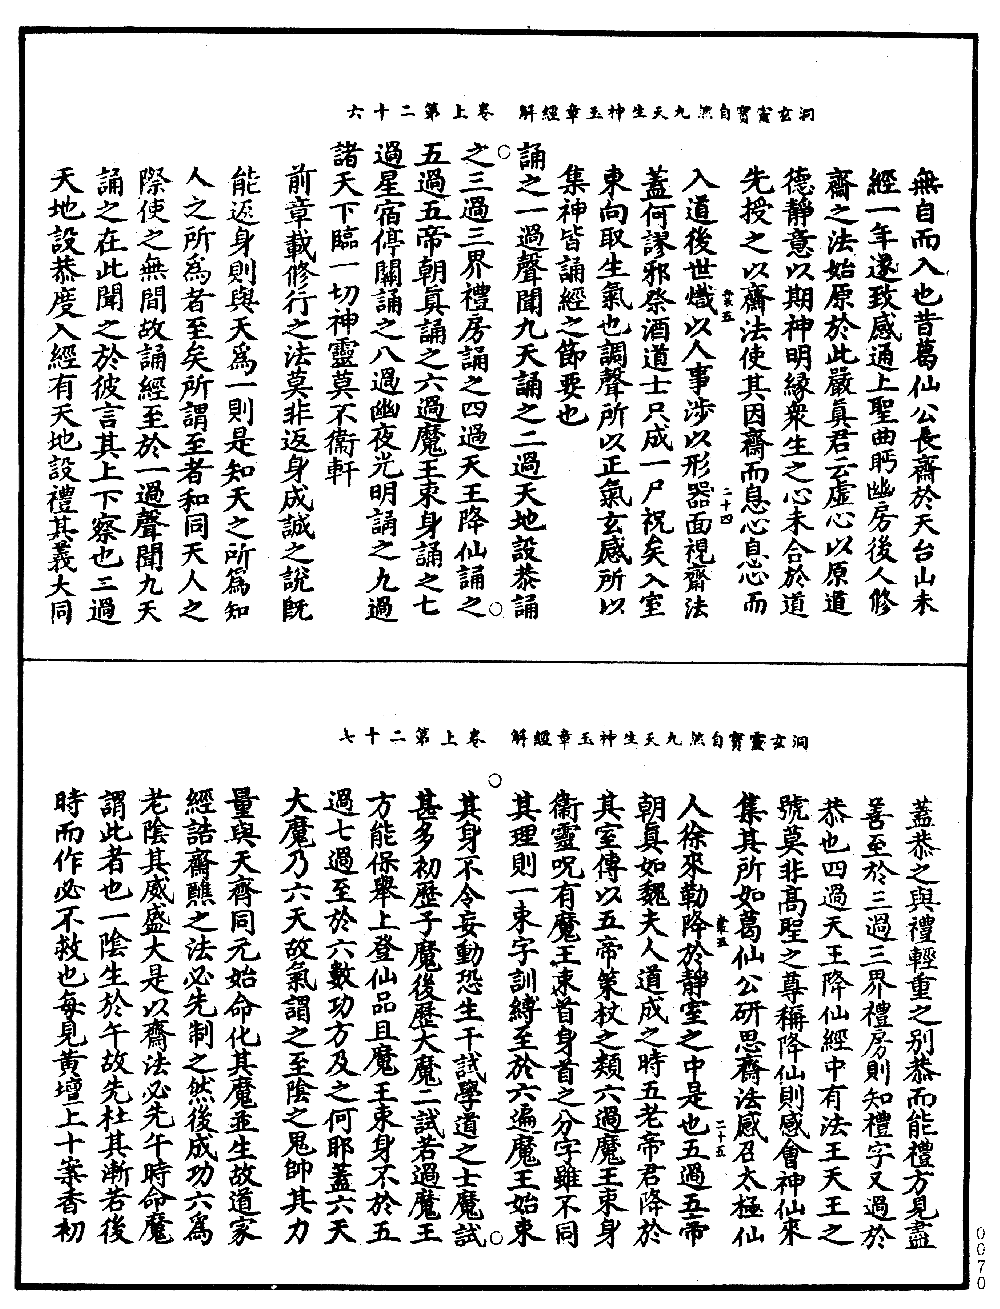 洞玄靈寶自然九天生神玉章經解　卷上第二十六
無自而入也昔葛仙公長齋於天台山未
經一年遂致感通上聖曲眄幽房後人修
齋之法始原於此嚴真君云虛心以原道
德靜意以期神明緣衆生之心未合於道
先授之以齋法使其因齋而息心息心而
裳五　二十四
入道後世熾以人事涉以形器面視齋法
蓋何謬邪祭酒道士只成一尸祝矣入室
東向取生氣也調聲所以正氣玄感所以
集神皆誦經之節要也
誦之一過聲聞九天誦之二過天地設恭誦
之三過三界禮房誦之四過天王降仙誦之
五過五帝朝真誦之六過魔王束身誦之七
過星宿停關誦之八過幽夜光明誦之九過
諸天下臨一切神靈莫不衞軒
前章載修行之法莫非返身成誠之說旣
能返身則與天爲一則是知天之所爲知
人之所爲者至矣所謂至者和同天人之
際使之無間故誦經至於一過聲聞九天
誦之在此聞之於彼言其上下察也二過
天地設恭度人經有天地設禮其義大同
洞玄靈寶自然九天生神玉章經解　卷上第二十七
蓋恭之與禮輕重之別恭而能禮方見盡
善至於三過三界禮房則知禮字又過於
恭也四過天王降仙經中有法王天王之
號莫非高聖之尊稱降仙則感會神仙來
集其所如葛仙公研思齋法感召太極仙
裳五　二十五
人徐來勒降於靜室之中是也五過五帝
朝真如魏夫人道成之時五老帝君降於
其室傳以五帝策杖之類六過魔王束身
衞靈呪有魔王束首身首之分字雖不同
其理則一束字訓縛至於六遍魔王始束
其身不令妄動恐生干試學道之士魔試
甚多初歷子魔後歷大魔二試若過魔王
方能保舉上登仙品且魔王束身不於五
過七過至於六數功方及之何耶蓋六天
大魔乃六天故氣謂之至陰之鬼帥其力
量與天齊同元始命化其魔並生故道家
經誥齋醮之法必先制之然後成功六爲
老陰其威盛大是以齋法必先午時命魔
謂此者也一陰生於午故先杜其漸若後
時而作必不救也每見黃壇上十案香初
0070